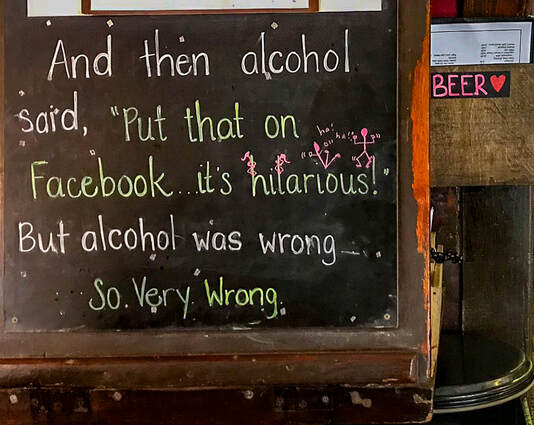 And then alcohol
said, "Put that on
ha! ha!
Facebook...it's hilarious!"
But alcohol was wrong...
So. Very. Wrong.
BEER